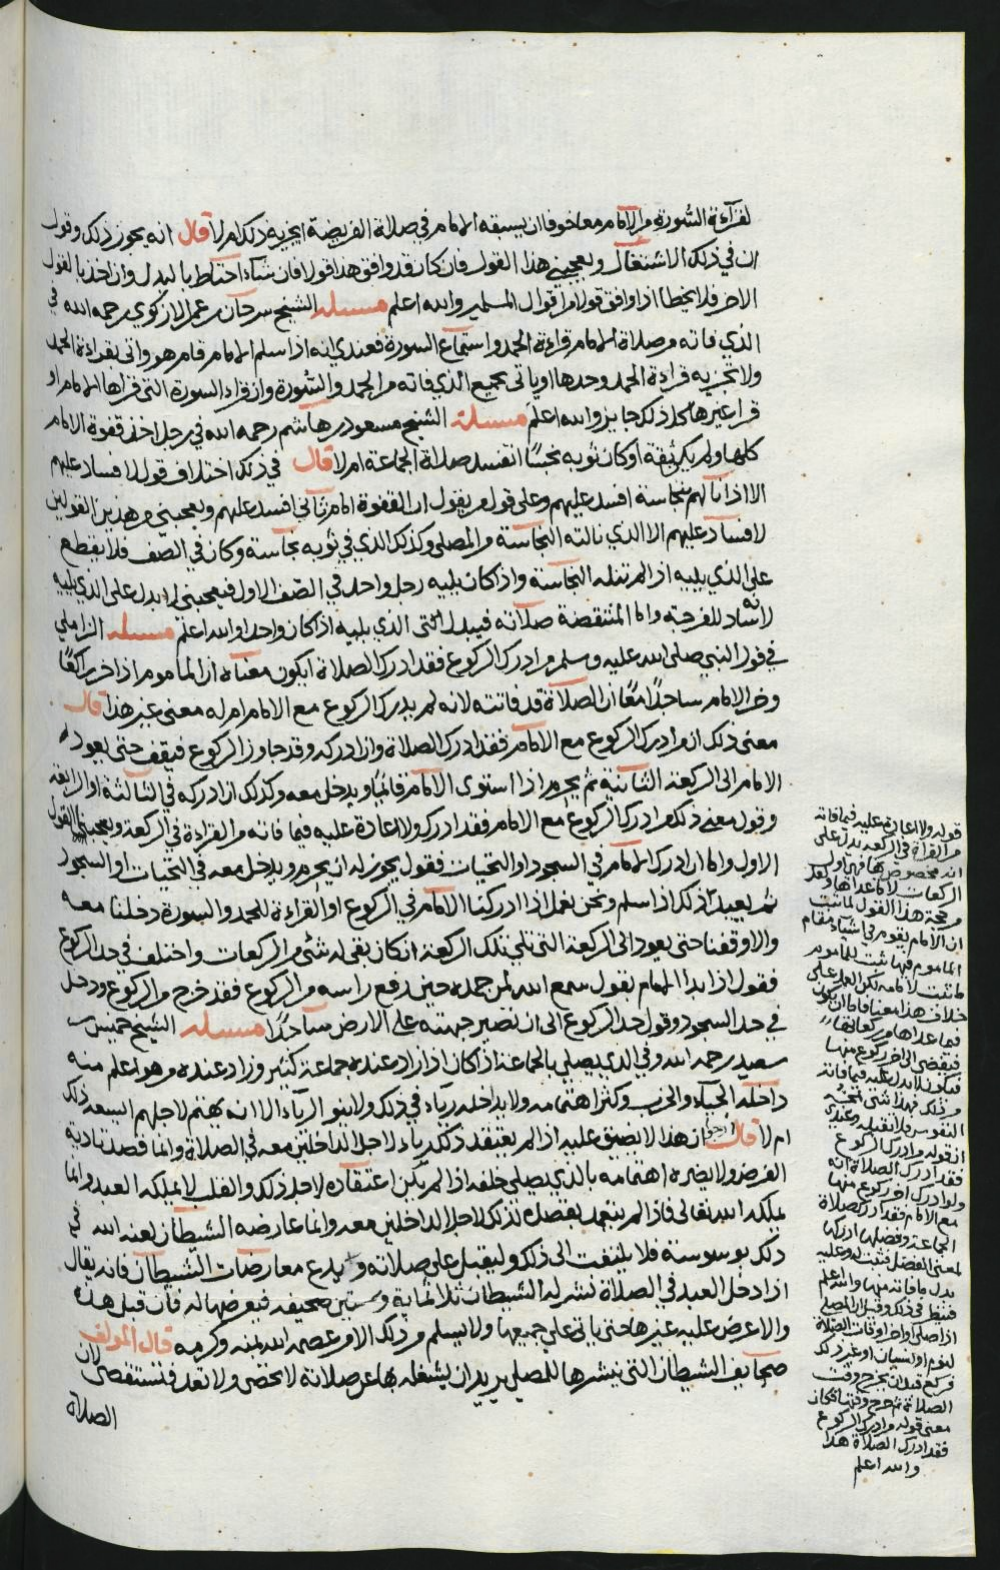 لقرآءة السورة من الامام معا خوفا ان يسبقه الامام في صلاة الفريضة ايجزيه ذلك ام لا قال انه يجوز ذلك وقول
ان في ذلك الاشتغال ويعجبني هذا القول فان كان قد وافق هذا قولا فان شآء احتاط بالبدل وان اخذ بالقول
الاخر فلا يخطا اذا وافق قولا من اقوال المسلمين والله اعلم مسئله الشيخ سرحان بن عمر الازكوي رحمه الله في
الذي فاته من صلاة الامام قراءة الحمد واستماع السورة فعندي انه اذا سلم الامام قام هو واتى بقراءة الحمد
ولا تجزيه قراءة الحمد وحدها او ياتي بجميع الذي فاته من الحمد والسورة وان قراء السورة التي قراها الامام او
قرا غيرها كل ذلك جايز والله اعلم مسئلة الشيخ مسعود بن هاشم رحمه الله في رجل اخذ قفوة الامام
كلها ولم يكن ثقة او كان ثوبه نجسًا اتفسد صلاة الجماعة ام لا قال في ذلك اختلاف قول لا فساد عليهم
الا اذا نالهم نجاسة افسد عليهم وعلى قول من يقول ان القفوة امام ثاني افسد عليهم ويعجبني من هذين القولين
لا فساد عليهم الا الذي نالته النجاسة من المصلي وكذلك الذي في ثوبه نجاسة وكان في الصف فلا يقطع
على الذي يليه اذا لم تنله النجاسة واذا كان يليه رجل واحد في الصف الاول فيعجبني له بدل على الذي يليه
لانه ساد للفرجة واما المنتقضة صلاته فيبدل الذي يليه اذا كان واحدا والله اعلم مسئله الزاملي
في قول النبي صلى الله عليه وسلم من ادرك الركوع فقد ادرك الصلاة ايكون معناه ان الماموم اذا خر راكعًا
وخر الامام ساجدًا معًا ان الصلاة قد فاتته لانه لم يدرك الركوع مع الامام ام له معنى غير هذا قال
معنى ذلك ان من ادرك الركوع مع الامام فقد ادرك الصلاة وان ادركه وقد جاوز الركوع فيقف حتى يعود
الامام الى الركعة الثانية ثم يحرم اذا استوى الامام قائمًا ويدخل معه وكذلك ان ادركه في الثالثة او الرابعة
وقول معنى ذلك من ادرك الركوع مع الامام فقد ادرك ولا اعادة عليه فيما فاته من القراءة في الركعة ويعجبني القول
الاول واما ان ادرك الامام في السجود او التحيات فقول يجوز له ان يحرم ويدخل معه في التحيات او السجود
ثم يعيد ذلك اذا سلم ونحن نعمل اذا ادركنا الامام في الركوع او القراءة للحمد والسورة دخلنا معه
والا وقفنا حتى يعود الى الركعة التي تلي تلك الركعة ان كان بقي له شئ من الركعات واختلف في حد الركوع
فقول اذا بدا الامام بقول سمع الله لمن حمده حين رفع راسه من الركوع فقد خرج من الركوع ودخل
في حد السجود وقول حد الركوع الى ان تصير جبهته على الارض ساجدًا مسئله الشيخ خميس بن
سعيد رحمه الله وفي الذي يصلي بالجماعة اذا كان اذا زاد عنده جماعة كثير وزاد عنده من هو اعلم منه
داخله الحيآء والخزى وكثر اهتمامه ولا يداخله ريآء في ذلك ولا ينوي الريآء الا انه يهتم لاجلهم ايسعه ذلك
ام لا قال ارجوا ان هذا لا يضيق عليه اذا لم يعتقد ذلك رياء لاجل الداخلين معه في الصلاة وانما قصد تادية
الفرض ولا يضره اهتمامه بالذي يصلي خلفه اذا لم يكن اعتقاده لاجل ذلك والقلب لا يملكه العبد وانما
يملكه الله تعالى فاذا لم يتعمد بقصده لذلك لاجل الداخلين معه وانما عارضه الشيطان لعنه الله
ذلك بوسوسة فلا يلتفت الى ذلك وليقبل على صلاته و يدع معارضات الشيطان فانه يقال
اذا دخل العبد في الصلاة نشر له الشيطان ثلاثماية وستين صحيفه فيعرضها له فان قبل هذه
والا عرض عليه غيرها حتى ياتي على جميعها ولا يسلم من ذلك الا من عصمه الله بمنه وكرمه قال المولف
صحايف الشيطان التي ينشرها للمصلي يريد ان يشغله بها عن صلاته لا تحصى ولا تعد فتستقصى لان
الصلاة
قوله ولا اعادة عليه فيما فاته
من القراة في الركعه يدل على
انه مخصوص بها في اول
الركعات لا ما عداها ولعل
من حجة هذا القول لما ثبت
ان الامام يقوم في اشياء مقام
الماموم فيها ثبت للماموم
ما ثبت لامامه لكن العمل على
خلاف هذا معنا فاما ان يكون
فيما عداها من ركعاتها
فيقضي الى اخر ركوع منها
فيكون لا بدل عليه فيما فاته
من ذلك فهذا شئ تمجه
النفوس فلا تقبله وعندي
ان قوله من ادرك الركوع
فقد ادرك الصلاة انه
ولو ادرك اخر ركوع منها
مع الامام فقد ادرك صلاة
الجماعة وفضلها ادركها
لمعنى الفضل فتثبت له وعليه
بدل ما فاته منها والله اعلم
فينظر في ذلك وقيل ان المصلي
اذا صلى اواخر اوقات الصلاة
لنوم او لنسيان او غير ذلك
فركع قبل ان يخرج وقت
الصلاة ثم خرج وقتها فكان
معنى قوله من ادرك الركوع
فقد ادرك الصلاة هذا
والله اعلم